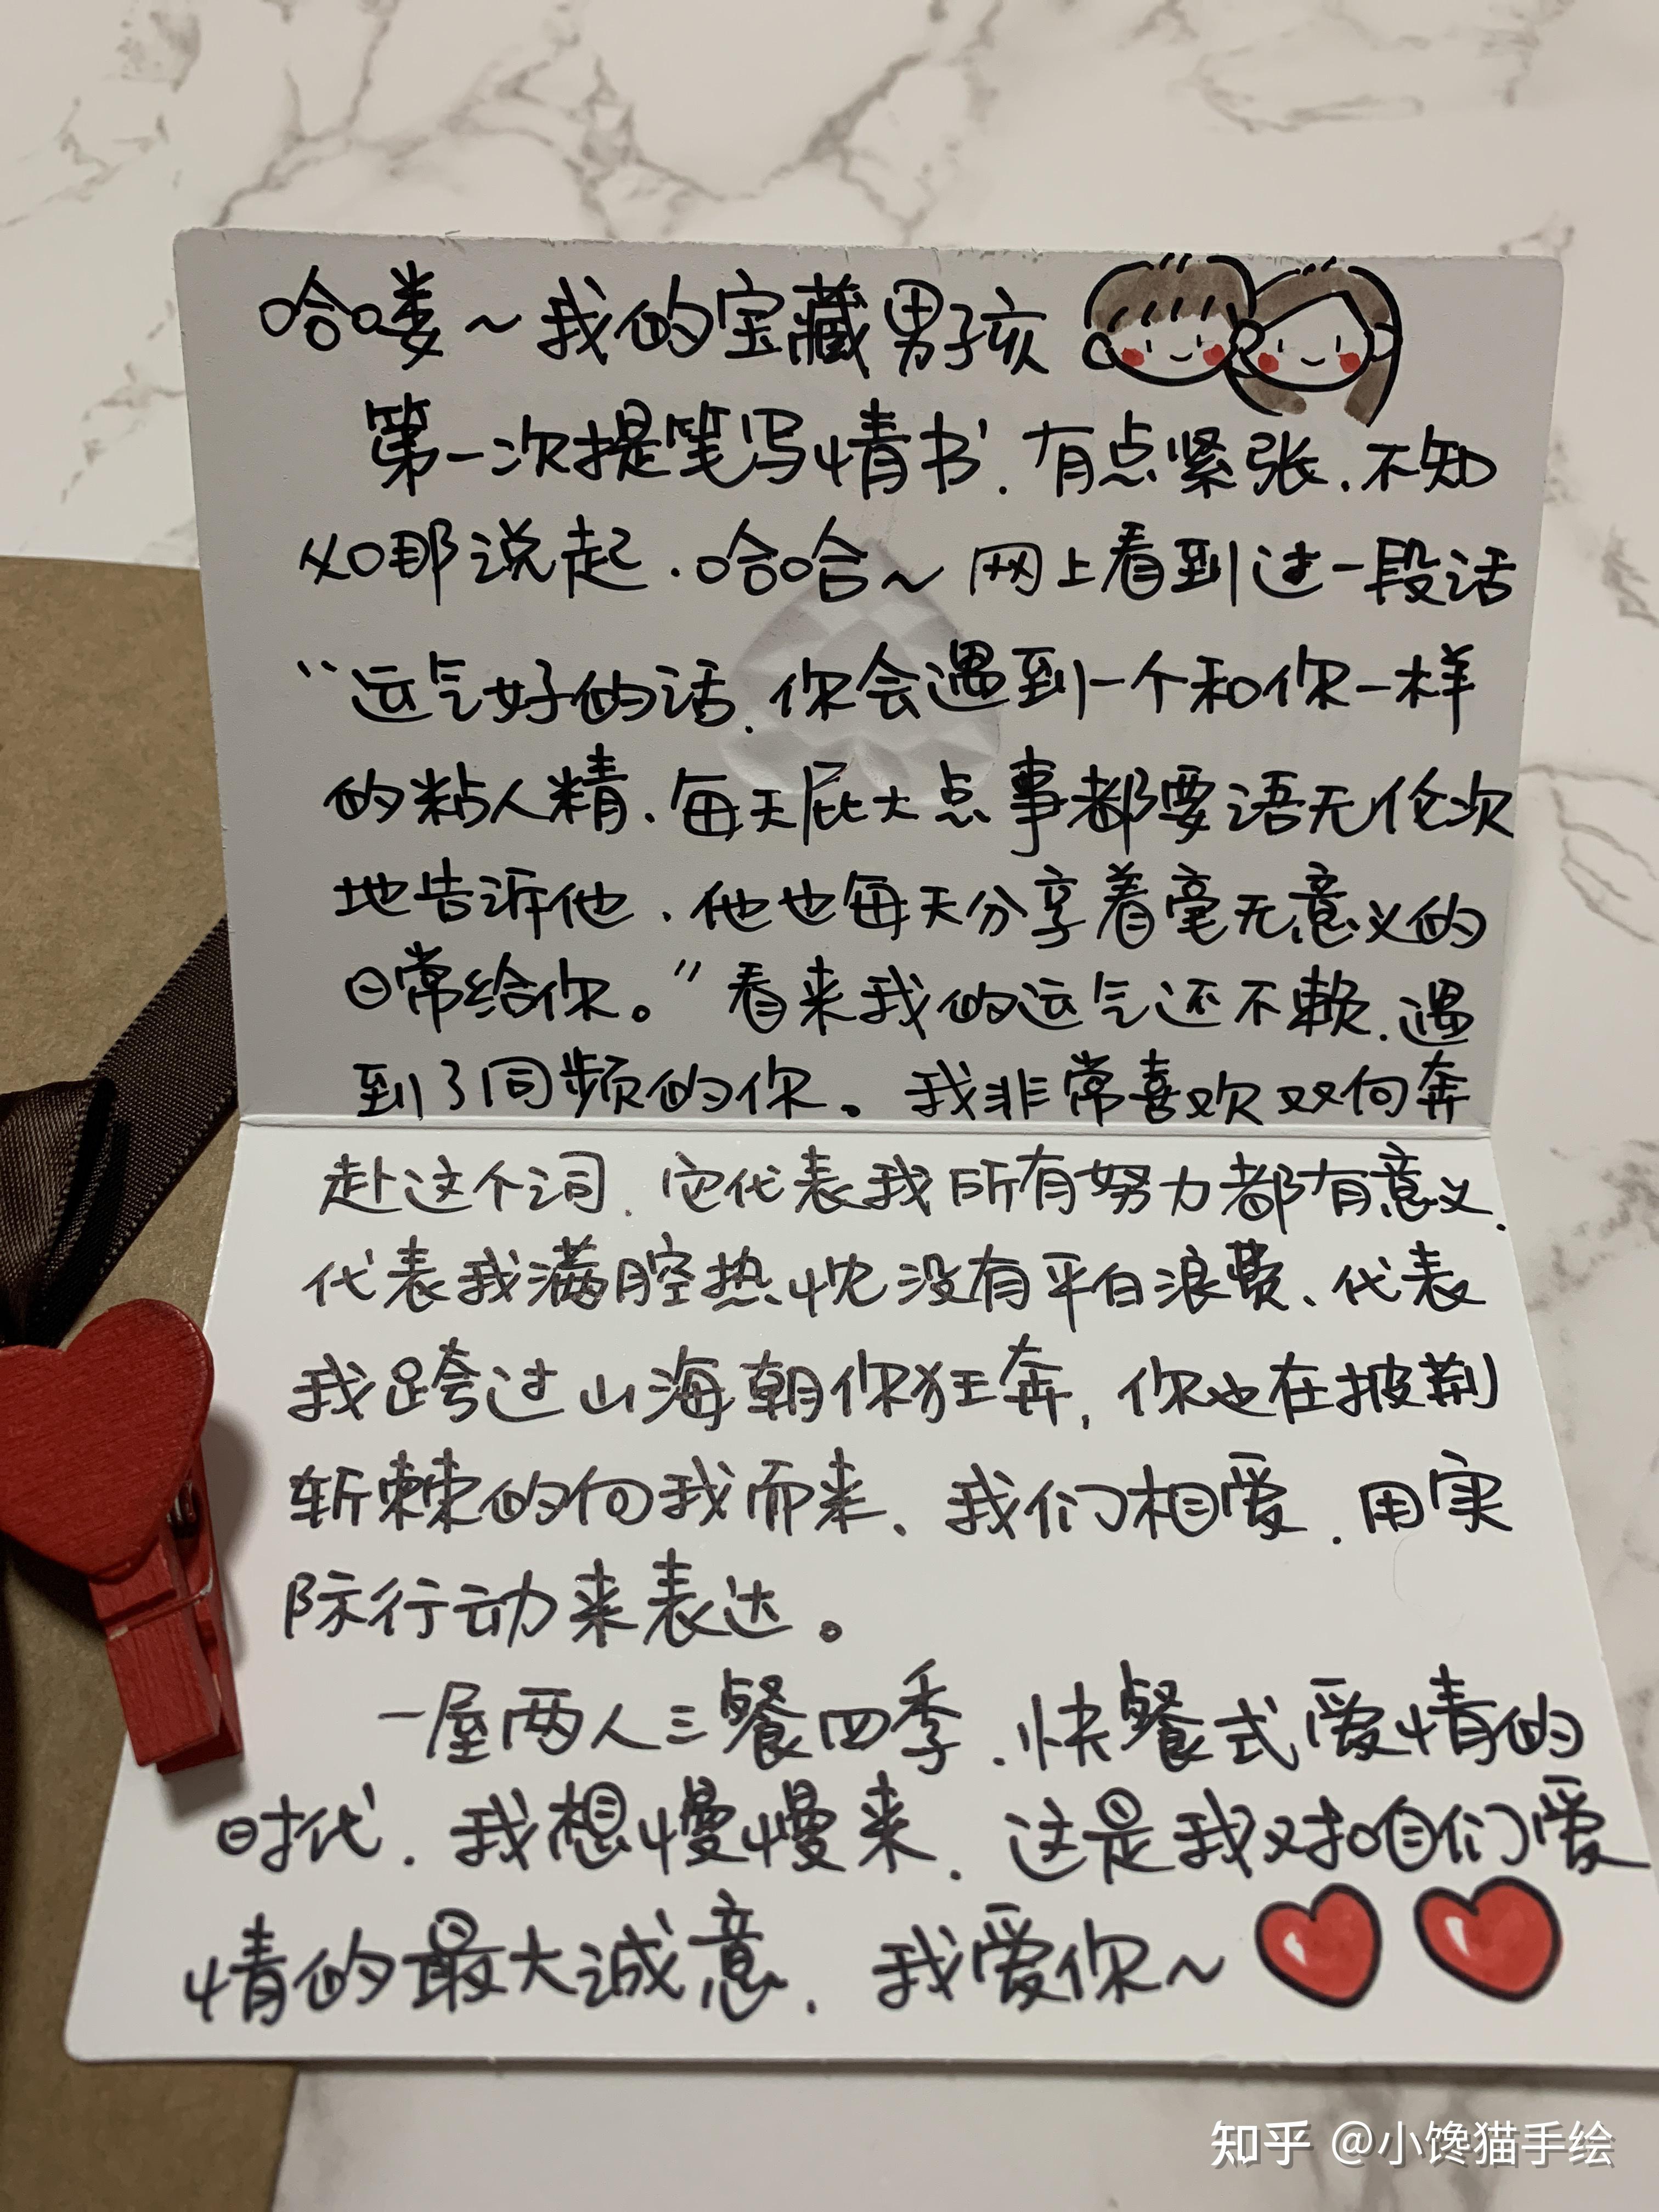 哈喽~我的宝藏男孩
第一次提笔写情书.有点紧张.不知
如那说起.哈哈~网上看到过一段话
“运气好的话.你会遇到一个和你一样
的粘人精.每天屁大点事都要语无伦次
地告诉他.他也每天分享着毫无意义的
日常给你。”看来我的运气还不赖.遇
到了同频的你。我非常喜欢双向奔
赴这个词.它代表我所有努力都有意义.
代表我满腔热忱没有平白浪费、代表
我跨过山海朝你狂奔,你也在披荆
斩棘的向我而来、我们相爱.用实
际行动来表达。
一屋两人三餐四季.快餐式爱情的
时代.我想慢慢来.这是我对咱们爱
情的最大诚意.我爱你~
知乎 @小馋猫手绘